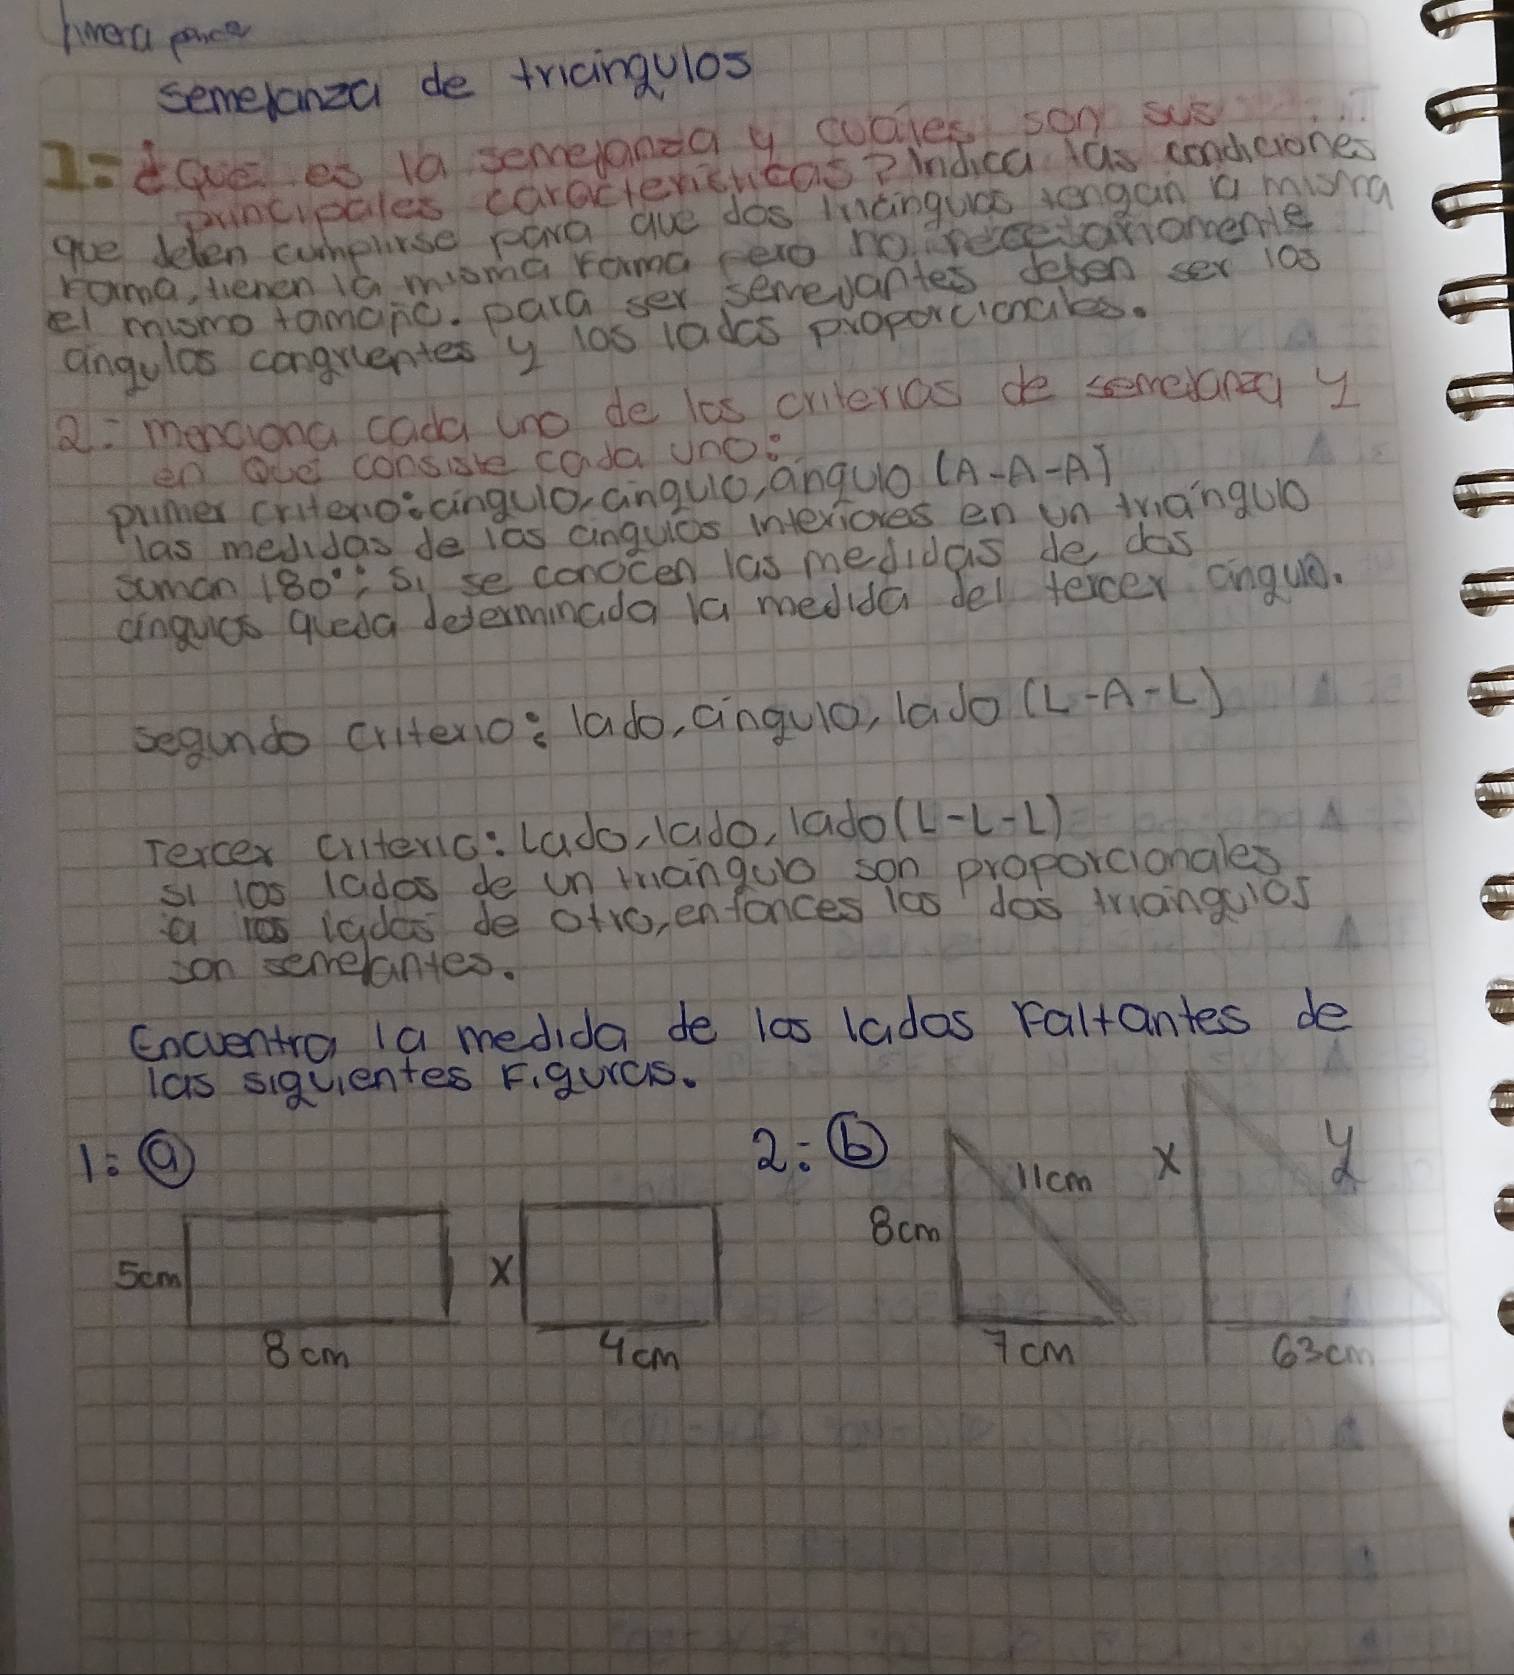 semejanza de triángulos
1= ¿Que es la semejanza y cuales son sus
principales caracteristicas? Indica las condiciones
que deben cumplirse para que dos triángulos tengan la misma
Forma, tienen la misma Forma pero no necesariamente
el mismo tamaño. para ser semejantes deben ser los
ángulos congruentes y los lados proporcionales.
2= menciona cada uno de los criterios de semejanza y
en que consiste cada uno:
primer criterio: ángulo, ángulo, ángulo (A-A-A)
las medidas de los ángulos interiores en un triángulo
suman 180°; si se conocen las medidas de dos
ángulos queda determinada la medida del tercer ángulo.
segundo criterio: lado, ángulo, lado (L-A-L)
Tercer criterio: Lado, lado, lado (L-L-L)
si los lados de un triángulo son proporcionales
a los lados de otro, entonces los dos triángulos
son semejantes.
Encuentra la medida de los lados Faltantes de
las siguientes Figuras.
1: a
2: b
11cm
x
y
8cm
5cm
x
8cm
4cm
7cm
63cm